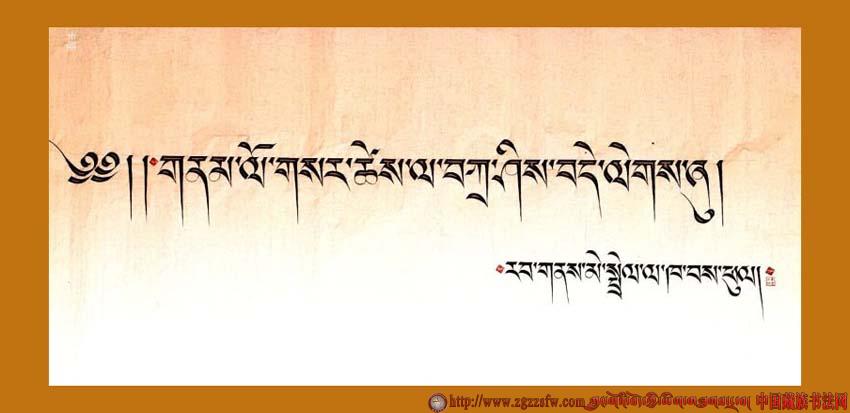 ༄༅།། གནམ་ལོ་གསར་ཚེས་ལ་བཀྲ་ཤིས་བདེ་ལེགས་ཞུ།
རབ་གནས་མེ་སྤྲེལ་ལ་ཁ་བས་ཕུལ།
http://www.zgzzsfw.com 中国藏族书法网